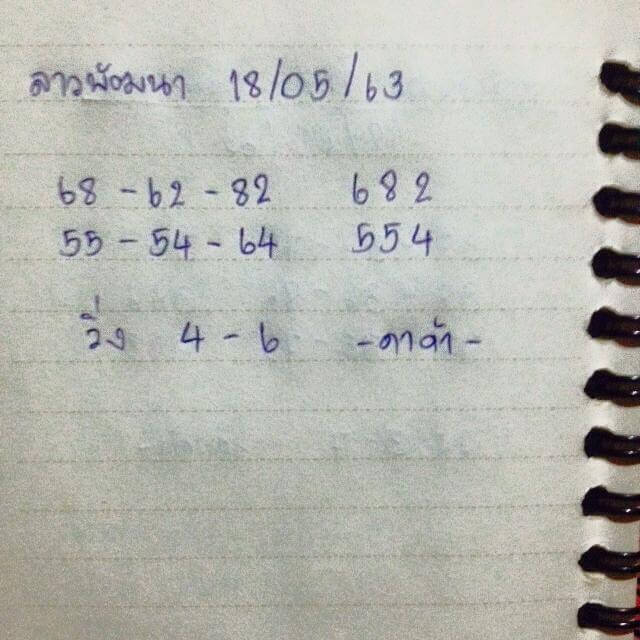 ลาวพัฒนา 18/05/63
68 - 62 - 82 682
55 - 54 - 64 554
วิ่ง 4 - 6 - ดาด้า -